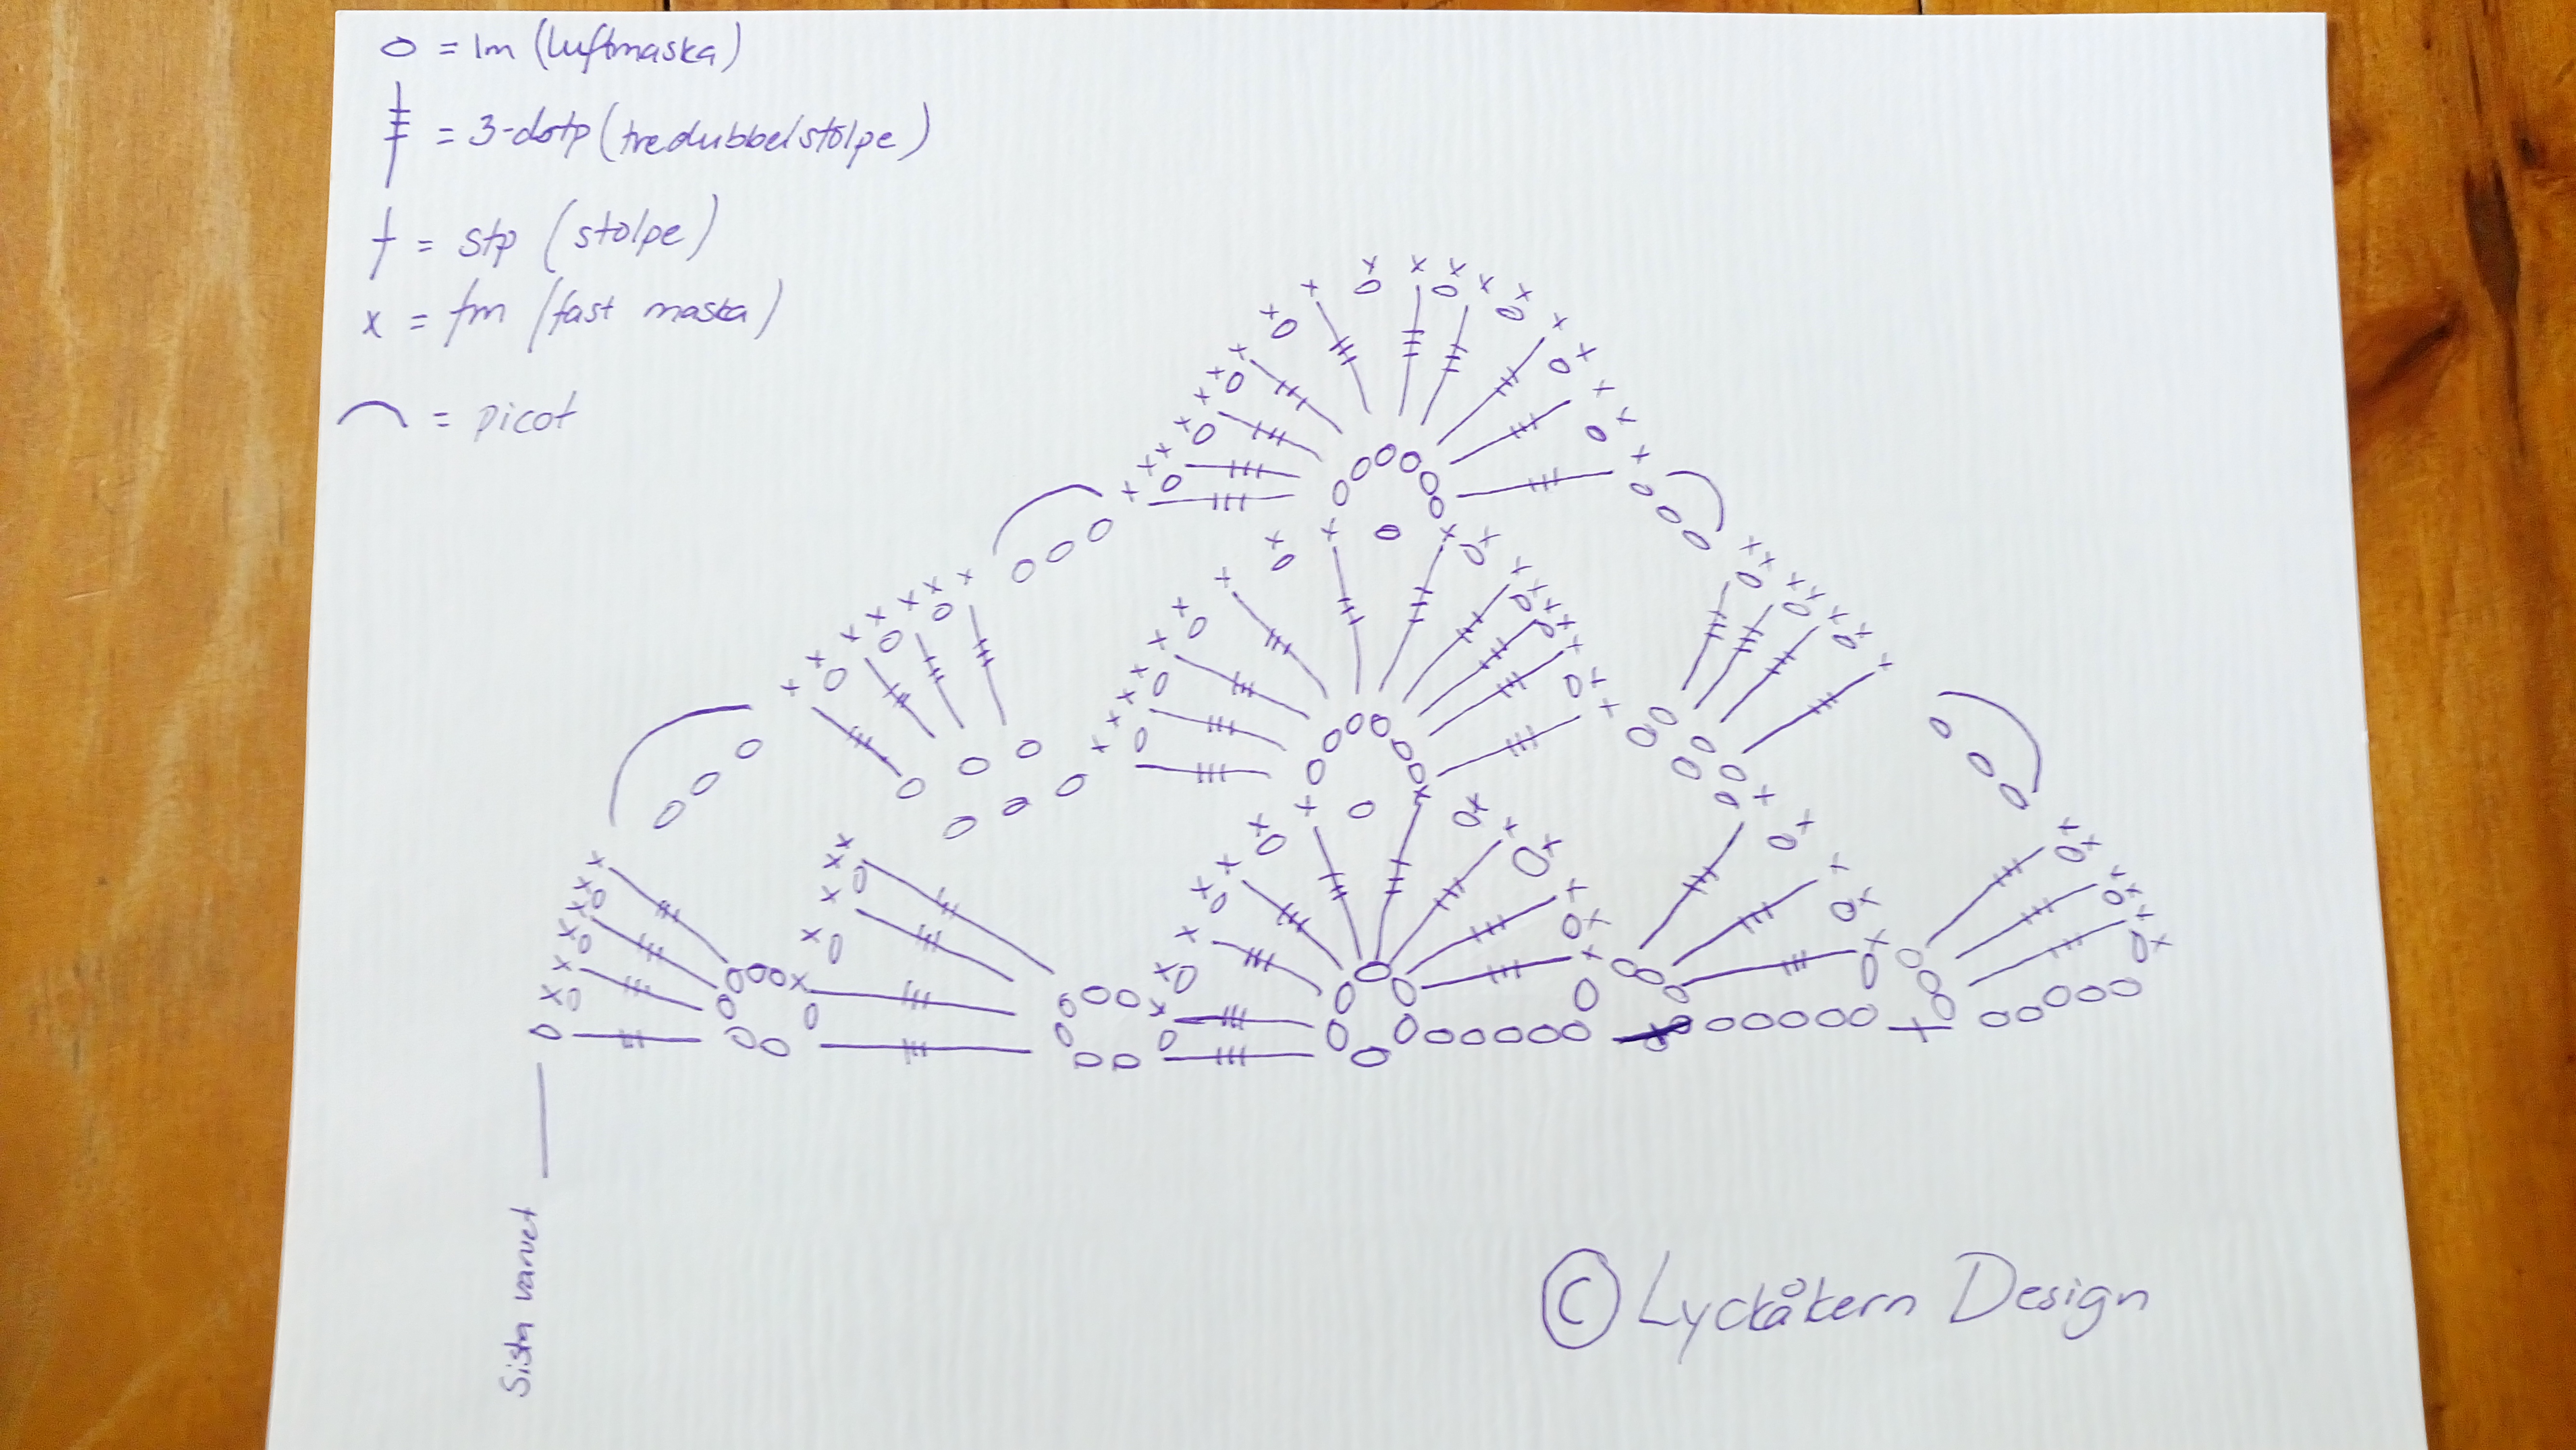 o = lm (luftmaska)
= 3-dstp (tredubbelstolpe)
= stp (stolpe)
x = fm (fast maska)
= picot
Sista varvet
© Lyckåkern Design